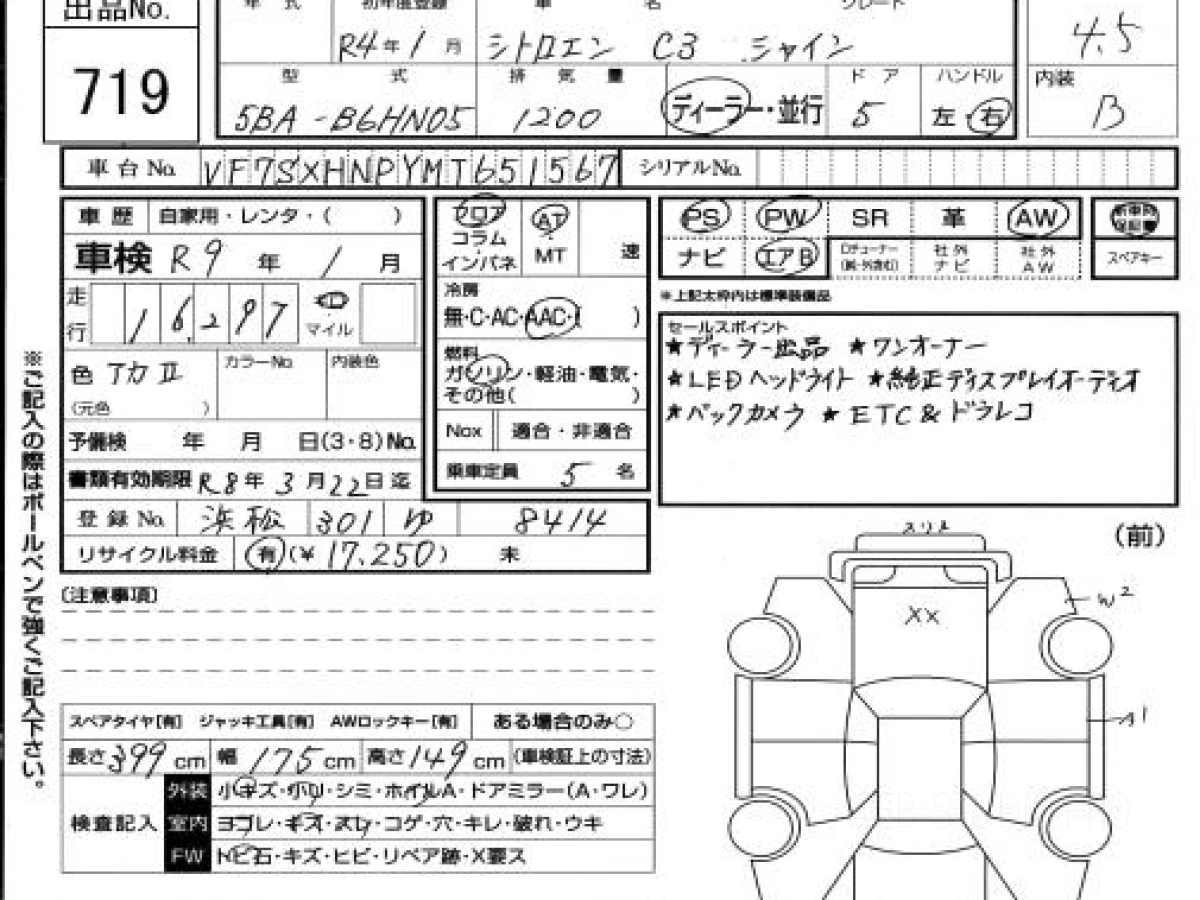 出品No.
719
年式 初年度登録 車名 グレード
R4年1月 シトロエン C3 シャイン
4.5
型式 排気量 ドア ハンドル
5BA-B6HN05 1200 ディーラー・並行 5 左・右
内装
B
車台No. VF7SXHNPYMT651567 シリアルNo.
車歴 自家用・レンタ・( )
車検 R9年 1月
走行 16,297 マイル
色 アカⅡ カラーNo. 内装色
(元色 )
予備検 年 月 日(3・8)No.
書類有効期限 R8年3月22日迄
登録No. 浜松 301 ゆ 8414
リサイクル料金 有(¥17.250) 未
フロア
コラム
インパネ
AT
MT
速
冷房
無・C・AC・AAC・( )
燃料
ガソリン・軽油・電気・
その他( )
Nox 適合・非適合
乗車定員 5名
PS PW SR 革 AW
ナビ エアB
社外ナビ
社外AW
スペアキー
※上記太枠内は標準装備品
セールスポイント
★ディーラー出品 ★ワンオーナー
★LEDヘッドライト ★純正ディスプレイオーディオ
★バックカメラ ★ETC&ドラレコ
※ご記入の際はボールペンで強くご記入下さい。
(注意事項)
スペアタイヤ[有] ジャッキ工具[有] AWロックキー[有] ある場合のみ○
長さ399cm 幅175cm 高さ149cm (車検証上の寸法)
検査記入
外装 小キズ・小凹・シミ・ホイルA・ドアミラー(A・ワレ)
室内 ヨゴレ・キズ・スレ・コゲ・穴・キレ・破れ・ウキ
FW トビ石・キズ・ヒビ・リペア跡・X要ス
(前)
スリキ
XX
W2
A1